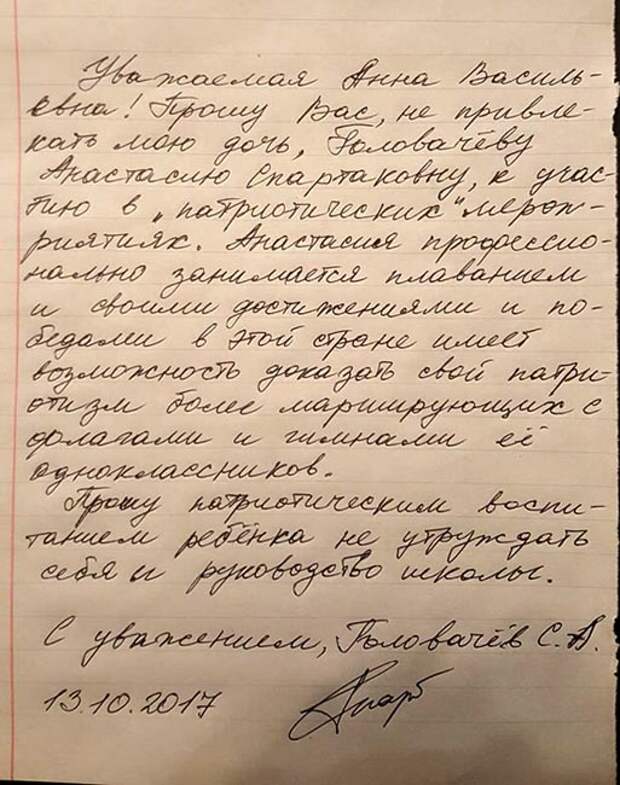 Уважаемая Анна Василь-
евна! Прошу Вас, не привле-
кать мою дочь, Головачёву
Анастасию Спартаковну, к учас-
тию в „патриотических" мероп-
риятиях. Анастасия профессио-
нально занимается плаванием
и своими достижениями и по-
бедами в этой стране имеет
возможность доказать свой патри-
отизм более марширующих с
флагами и гимнами её
одноклассников.
Прошу патриотическим воспи-
танием ребёнка не утруждать
себя и руководство школы.
С уважением, Головачёв С.А.
13.10.2017